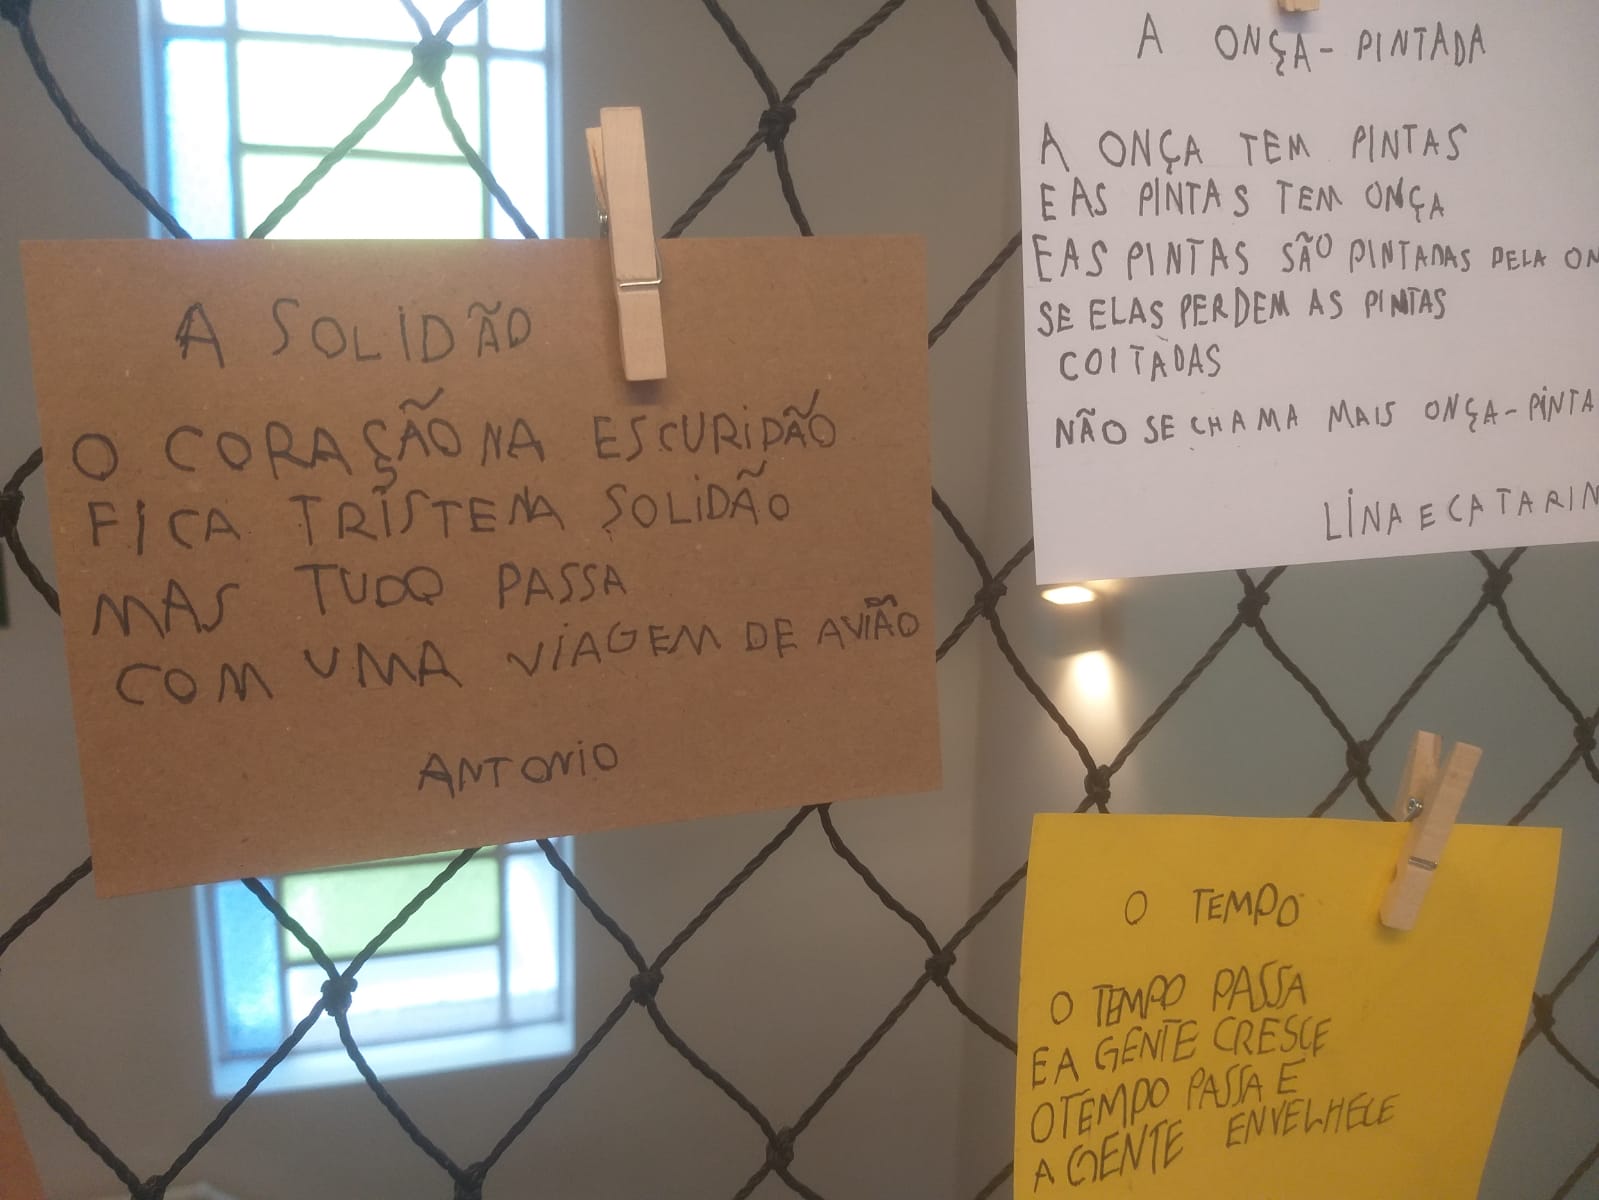 A SOLIDÃO
O CORAÇÃO NA ESCURIDÃO
FICA TRISTE NA SOLIDÃO
MAS TUDO PASSA
COM UMA VIAGEM DE AVIÃO
ANTONIO
A ONÇA-PINTADA
A ONÇA TEM PINTAS
E AS PINTAS TEM ONÇA
E AS PINTAS SÃO PINTADAS PELA ON
SE ELAS PERDEM AS PINTAS
COITADAS
NÃO SE CHAMA MAIS ONÇA-PINTA
LINA E CATARIN
O TEMPO
O TEMPO PASSA
E A GENTE CRESCE
O TEMPO PASSA E
A GENTE ENVELHECE